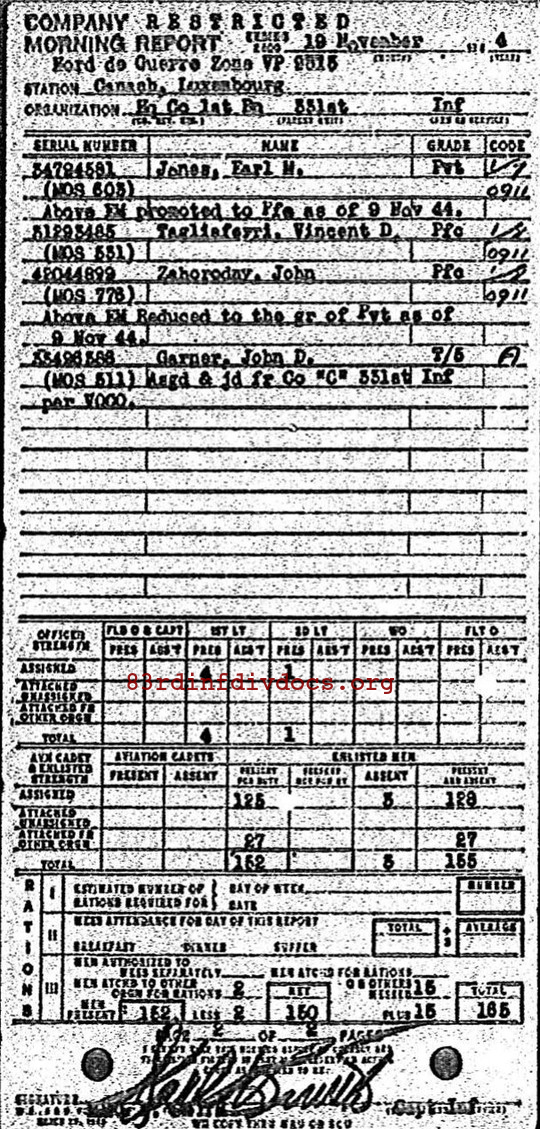 COMPANY RESTRICTED
MORNING REPORT 19 November 4
Ford de Guerre Zone VP 9515
STATION Canach, Luxembourg
ORGANIZATION Hq Co 1st Bn 331st Inf
SERIAL NUMBER NAME GRADE CODE
34724581 Jones, Earl M. Pvt
(MOS 605) 0911
Above EM promoted to Pfc as of 9 Nov 44.
31293485 Tagliaferri, Vincent D. Pfc
(MOS 531) 0911
42044899 Zahorodny, John Pfc
(MOS 776) 0911
Above EM Reduced to the gr of Pvt as of
9 Nov 44.
John D. T/5 A
(MOS 511) Asgd & jd fr Co "C" 331st Inf
per VOCO.
OFFICER STRENGTH FLD O & CAPT 1ST LT 2D LT WO FLT O
PRES ABS'T PRES ABS'T PRES ABS'T PRES ABS'T PRES ABS'T
ASSIGNED 4 1
83rdinfdivdocs.org
ATTACHED UNASSIGNED
ATTACHED FR OTHER ORGN
TOTAL 4 1
AVN CADET & ENLISTED STRENGTH AVIATION CADETS ENLISTED MEN
PRESENT ABSENT PRESENT FOR DUTY PRESENT NOT FOR DY ABSENT PRESENT AND ABSENT
ASSIGNED 125 3 128
ATTACHED UNASSIGNED
ATTACHED FR OTHER ORGN 27 27
TOTAL 152 3 155
RATIONS
I ESTIMATED NUMBER OF RATIONS REQUIRED FOR DAY OF WEEK DATE NUMBER
II MESS ATTENDANCE FOR DAY OF THIS REPORT TOTAL ÷ 3 AVERAGE
BREAKFAST DINNER SUPPER
III MEN AUTHORIZED TO MESS SEPARATELY MEN ATCHD FOR RATIONS
MEN ATCHD TO OTHER ORGN FOR RATIONS 2 NET OR OTHERS MESSED 15 TOTAL
MEN PRESENT 152 LESS 2 150 PLUS 15 165
2 OF 2 PAGES
SIGNATURE Capt Inf